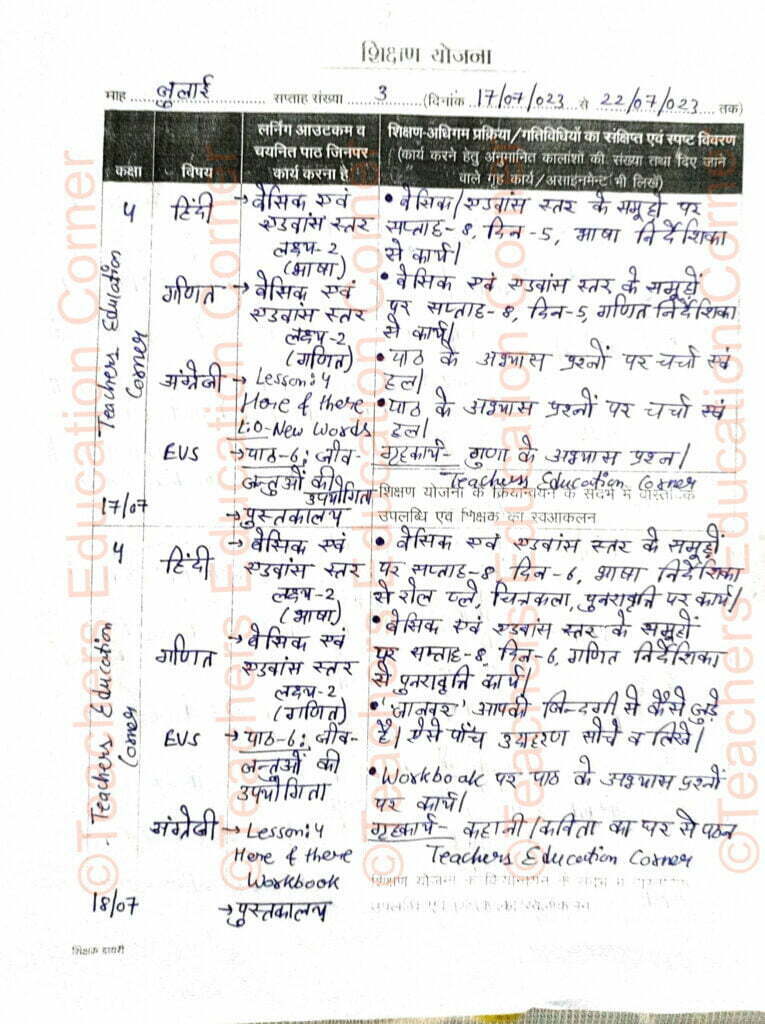 शिक्षण योजना
माह जुलाई सप्ताह संख्या 3 (दिनांक 17/07/023 से 22/07/023 तक)
कक्षा
विषय
लर्निंग आउटकम व
चयनित पाठ जिनपर
कार्य करना है
शिक्षण-अधिगम प्रक्रिया/गतिविधियों का संक्षिप्त एवं स्पष्ट विवरण
(कार्य करने हेतु अनुमानित कालांशों की संख्या तथा दिए जाने
वाले गृह कार्य/असाइनमेन्ट भी लिखें)
4
हिंदी
→ बेसिक एवं
एडवांस स्तर
लक्ष्य-2
(भाषा)
• बेसिक/एडवांस स्तर के समूहों पर
सप्ताह-8, दिन-5, भाषा निर्देशिका
से कार्य।
गणित
→ बेसिक एवं
एडवांस स्तर
लक्ष्य-2
(गणित)
• बेसिक एवं एडवांस स्तर के समूहों
पर सप्ताह-8, दिन-5, गणित निर्देशिका
से कार्य।
अंग्रेजी
→ Lesson:4
Here & there
L:O-New Words
• पाठ के अभ्यास प्रश्नों पर चर्चा एवं
हल।
EVS
→ पाठ-6: जीव-
जन्तुओं की
उपयोगिता
→ पुस्तकालय
• पाठ के अभ्यास प्रश्नों पर चर्चा एवं
हल।
गृहकार्य- गुणा के अभ्यास प्रश्न।
Teachers Education Corner
शिक्षण योजना के क्रियान्वयन के संदर्भ में
उपलब्धि एवं शिक्षक का स्वआकलन
17/07
Teachers Education
Corner
4
हिंदी
→ बेसिक एवं
एडवांस स्तर
लक्ष्य-2
(भाषा)
• बेसिक एवं एडवांस स्तर के समूहों
पर सप्ताह-8 दिन-6, भाषा निर्देशिका
से रोल प्ले, चित्रकला, पुनरावृत्ति पर कार्य।
गणित
→ बेसिक एवं
एडवांस स्तर
लक्ष्य-2
(गणित)
• बेसिक एवं एडवांस स्तर के समूहों
पर सप्ताह-8, दिन-6, गणित निर्देशिका
से पुनरावृत्ति कार्य।
EVS
→ पाठ-6: जीव-
जन्तुओं की
उपयोगिता
• 'जानवर' आपकी जिन्दगी से कैसे जुड़े
है। ऐसे पाँच उदाहरण सोचे व लिखें।
अंग्रेजी
→ Lesson:4
Here & there
Workbook
→ पुस्तकालय
• Workbook पर पाठ के अभ्यास प्रश्नों
पर कार्य।
गृहकार्य- कहानी/कविता का घर से पठन
Teachers Education Corner
18/07
Teachers Education
Corner
शिक्षक डायरी
©Teachers Education Corner
©Teachers Education Corner
©Teachers Education Corner
©Teachers Education Corner